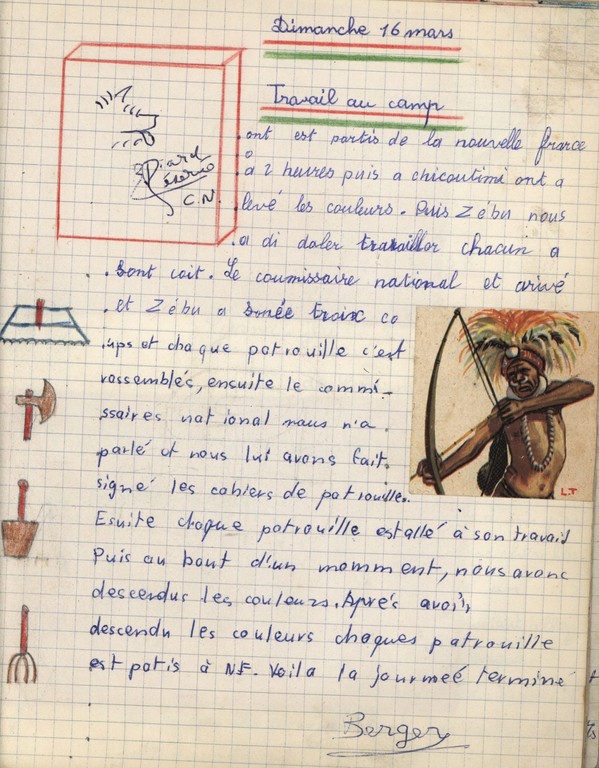 Dimanche 16 mars
Travail au camp
ont est partis de la nouvelle france
a 2 heures puis a chicoutimi ont a
levé les couleurs. Puis Zébu nous
a di daler travailler chacun a
sont coit. Le coumissaire national et arivé
et Zébu a sonée troix co
ups et chaque patrouille c'est
rassemblés, ensuite le commi-
ssaires national nous n'a
parlé et nous lui avons fait
signé les cahiers de patrouille.
Esuite chaque patrouille est allé à son travail
Puis au bout d'un momment, nous avons
descendus les couleurs. Aprés avoir
descendu les couleurs chaques patrouille
est patis à NF. Voila la journeé terminé
Berger
C.N.
L.T